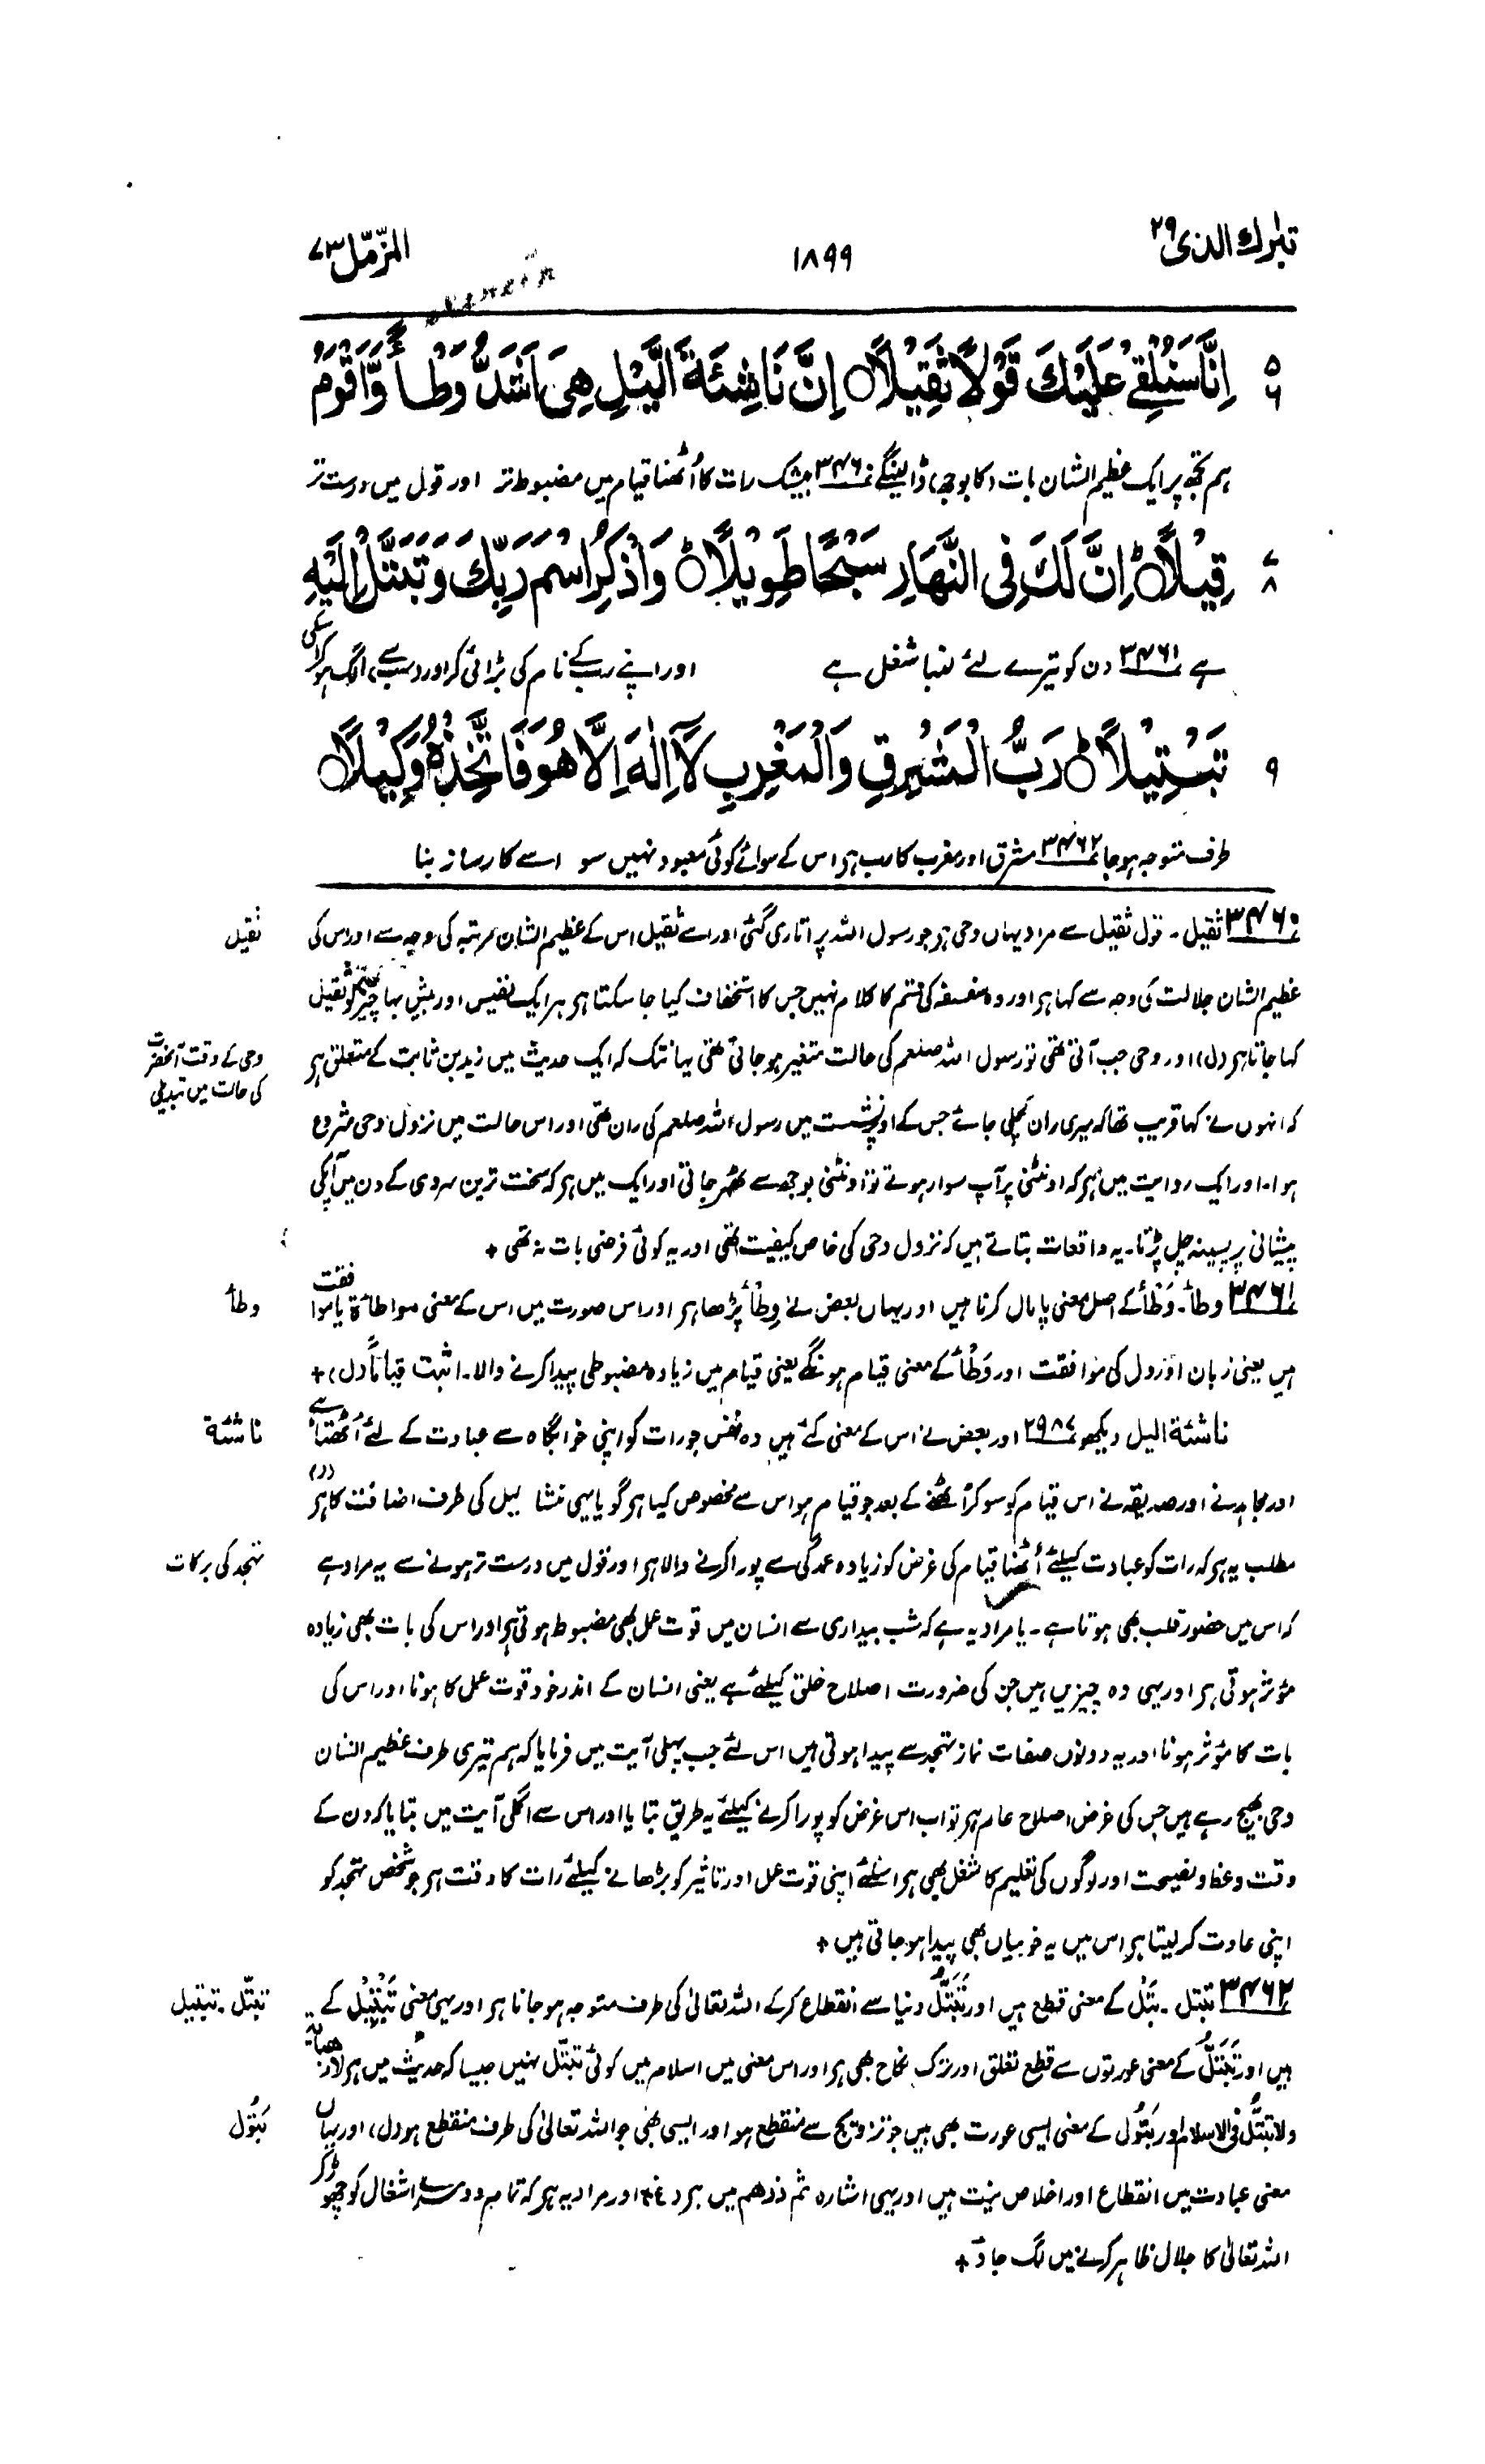 تبٰرك الذی ۲۹
۱۸۹۹
المزّمّل ۷۳
۵ اِنَّا سَنُلْقِیْ عَلَیْكَ قَوْلًا ثَقِیْلًا ○ اِنَّ نَاشِئَةَ الَّیْلِ هِیَ اَشَدُّ وَطْاً وَّاَقْوَمُ
۶
ہم تجھ پر ایک عظیم الشان بات (کا بوجھ) ڈالینگے ۳۴۶۰ بیشک رات کا اُٹھنا قیام میں مضبوط تر اور قول میں درست تر
۷ قِیْلًا ○ اِنَّ لَكَ فِی النَّهَارِ سَبْحًا طَوِیْلًا ○ وَاذْكُرِ اسْمَ رَبِّكَ وَتَبَتَّلْ اِلَیْهِ
۸
ہے ۳۴۶۱ دن کو تیرے لئے لنبا شغل ہے اور اپنے رب کے نام کی بڑائی کر اور (سب سے) الگ ہو کر اسکی
۹ تَبْتِیْلًا ○ رَبُّ الْمَشْرِقِ وَالْمَغْرِبِ لَاۤ اِلٰهَ اِلَّا هُوَ فَاتَّخِذْهُ وَكِیْلًا ○
طرف متوجہ ہو جا ۳۴۶۲ مشرق اور مغرب کا رب ہے اس کے سوائے کوئی معبود نہیں سو اسے کارساز بنا
۳۴۶۰ ثقیل۔ قول ثقیل سے مراد یہاں وحی ہے جو رسول اللہ پر اتاری گئی اور اسے ثقیل اس کے عظیم الشان مرتبہ کی وجہ سے اور اس کی
ثقیل
عظیم الشان جلالت کی وجہ سے کہا ہے اور وہ سفسفہ کی قسم کا کلام نہیں جس کا استخفاف کیا جا سکتا ہے ہر ایک نفیس اور بیش بہا چیز کو ثقیل
کہا جاتا ہے (ل) اور وحی جب آتی تھی تو رسول اللہ صلعم کی حالت متغیر ہو جاتی تھی یہانتک کہ ایک حدیث میں زید بن ثابت کے متعلق ہے
وحی کے وقت آنحضرت
کی حالت میں تبدیلی
کہ انہوں نے کہا قریب تھا کہ میری ران کچلی جائے جس کے اوپر نشست میں رسول اللہ صلعم کی ران تھی اور اس حالت میں نزول وحی شروع
ہوا۔ اور ایک روایت میں ہے کہ اونٹنی پر آپ سوار ہوتے تو اونٹنی بوجھ سے ٹھہر جاتی اور ایک میں ہے کہ سخت ترین سردی کے دن میں آپکی
پیشانی پر پسینہ چل پڑتا۔ یہ واقعات بتاتے ہیں کہ نزول وحی کی خاص کیفیت تھی اور یہ کوئی فرضی بات نہ تھی +
۳۴۶۱ وطأ۔ وَطْأ کے اصل معنی پامال کرنا ہیں اور یہاں بعض نے وِطْأ پڑھا ہے اور اس صورت میں اس کے معنی مواطاۃ یا موافقت
وطأ
ہیں یعنی زبان اور دل کی موافقت اور وَطْأ کے معنی قیام ہونگے یعنی قیام میں زیادہ مضبوطی پیدا کرنے والا۔ اثبت قیاماً (ل) +
ناشئة الیل دیکھو ۲۹۸۷ اور بعض نے اس کے معنی کئے ہیں وہ نفس جو رات کو اپنی خوابگاہ سے عبادت کے لئے اُٹھتا ہے
ناشئة
اور مجاہد نے اور صدیقہ نے اس قیام کو سو کر اُٹھنے کے بعد جو قیام ہو اس سے مخصوص کیا ہے گویا یہی منشا لیل کی طرف اضافت کا ہے (ر)
مطلب یہ ہے کہ رات کو عبادت کیلئے اُٹھنا قیام کی غرض کو زیادہ عمدگی سے پورا کرنے والا ہے اور قول میں درست تر ہونے سے یہ مراد ہے
تہجد کی برکات
کہ اس میں حضور قلب بھی ہوتا ہے۔ یا مراد یہ ہے کہ شب بیداری سے انسان میں قوت عمل بھی مضبوط ہوتی ہے اور اس کی بات بھی زیادہ
مؤثر ہوتی ہے اور یہی دہ چیزیں ہیں جن کی ضرورت اصلاح خلق کیلئے ہے یعنی انسان کے اندر خود قوت عمل کا ہونا اور اس کی
بات کا مؤثر ہونا اور یہ دونوں صفات نماز تہجد سے پیدا ہوتی ہیں اس لئے جب پہلی آیت میں فرمایا کہ ہم تیری طرف عظیم الشان
وحی بھیج رہے ہیں جس کی غرض اصلاح عام ہے تو اب اس غرض کو پورا کرنے کیلئے یہ طریق بتایا اور اس سے اگلی آیت میں بتایا کہ دن کے
وقت وعظ و نصیحت اور لوگوں کی تعلیم کا شغل بھی ہے اسلئے اپنی قوت عمل اور تاثیر کو بڑھانے کیلئے رات کا وقت ہے جو شخص تہجد کو
اپنی عادت کر لیتا ہے اس میں یہ خوبیاں بھی پیدا ہو جاتی ہیں +
۳۴۶۲ تبتل۔ بَتْل کے معنی قطع ہیں اور تَبَتُّل دنیا سے انقطاع کر کے اللہ تعالیٰ کی طرف متوجہ ہو جانا ہے اور یہی معنی تَبْتِیْل کے
تبتّل۔ تبتیل
ہیں اور تَبَتُّل کے معنی عورتوں سے قطع تعلق اور ترک نکاح بھی ہے اور اس معنی میں اسلام میں کوئی تبتّل نہیں جیسا کہ حدیث میں ہے لا رھبانیة
ولا تبتُّل فی الاسلام اور بَتُول کے معنی ایسی عورت بھی ہیں جو تزویج سے منقطع ہو اور ایسی بھی جو اللہ تعالیٰ کی طرف منقطع ہو (ل) اور یہاں
بَتُول
معنی عبادت میں انقطاع اور اخلاص نیت ہیں اور یہی اشارہ ثم ذرھم میں ہے (غ) اور مراد یہ ہے کہ تمام دوسرے اشغال کو چھوڑ کر
اللہ تعالیٰ کا جلال ظاہر کرنے میں لگ جاؤ +